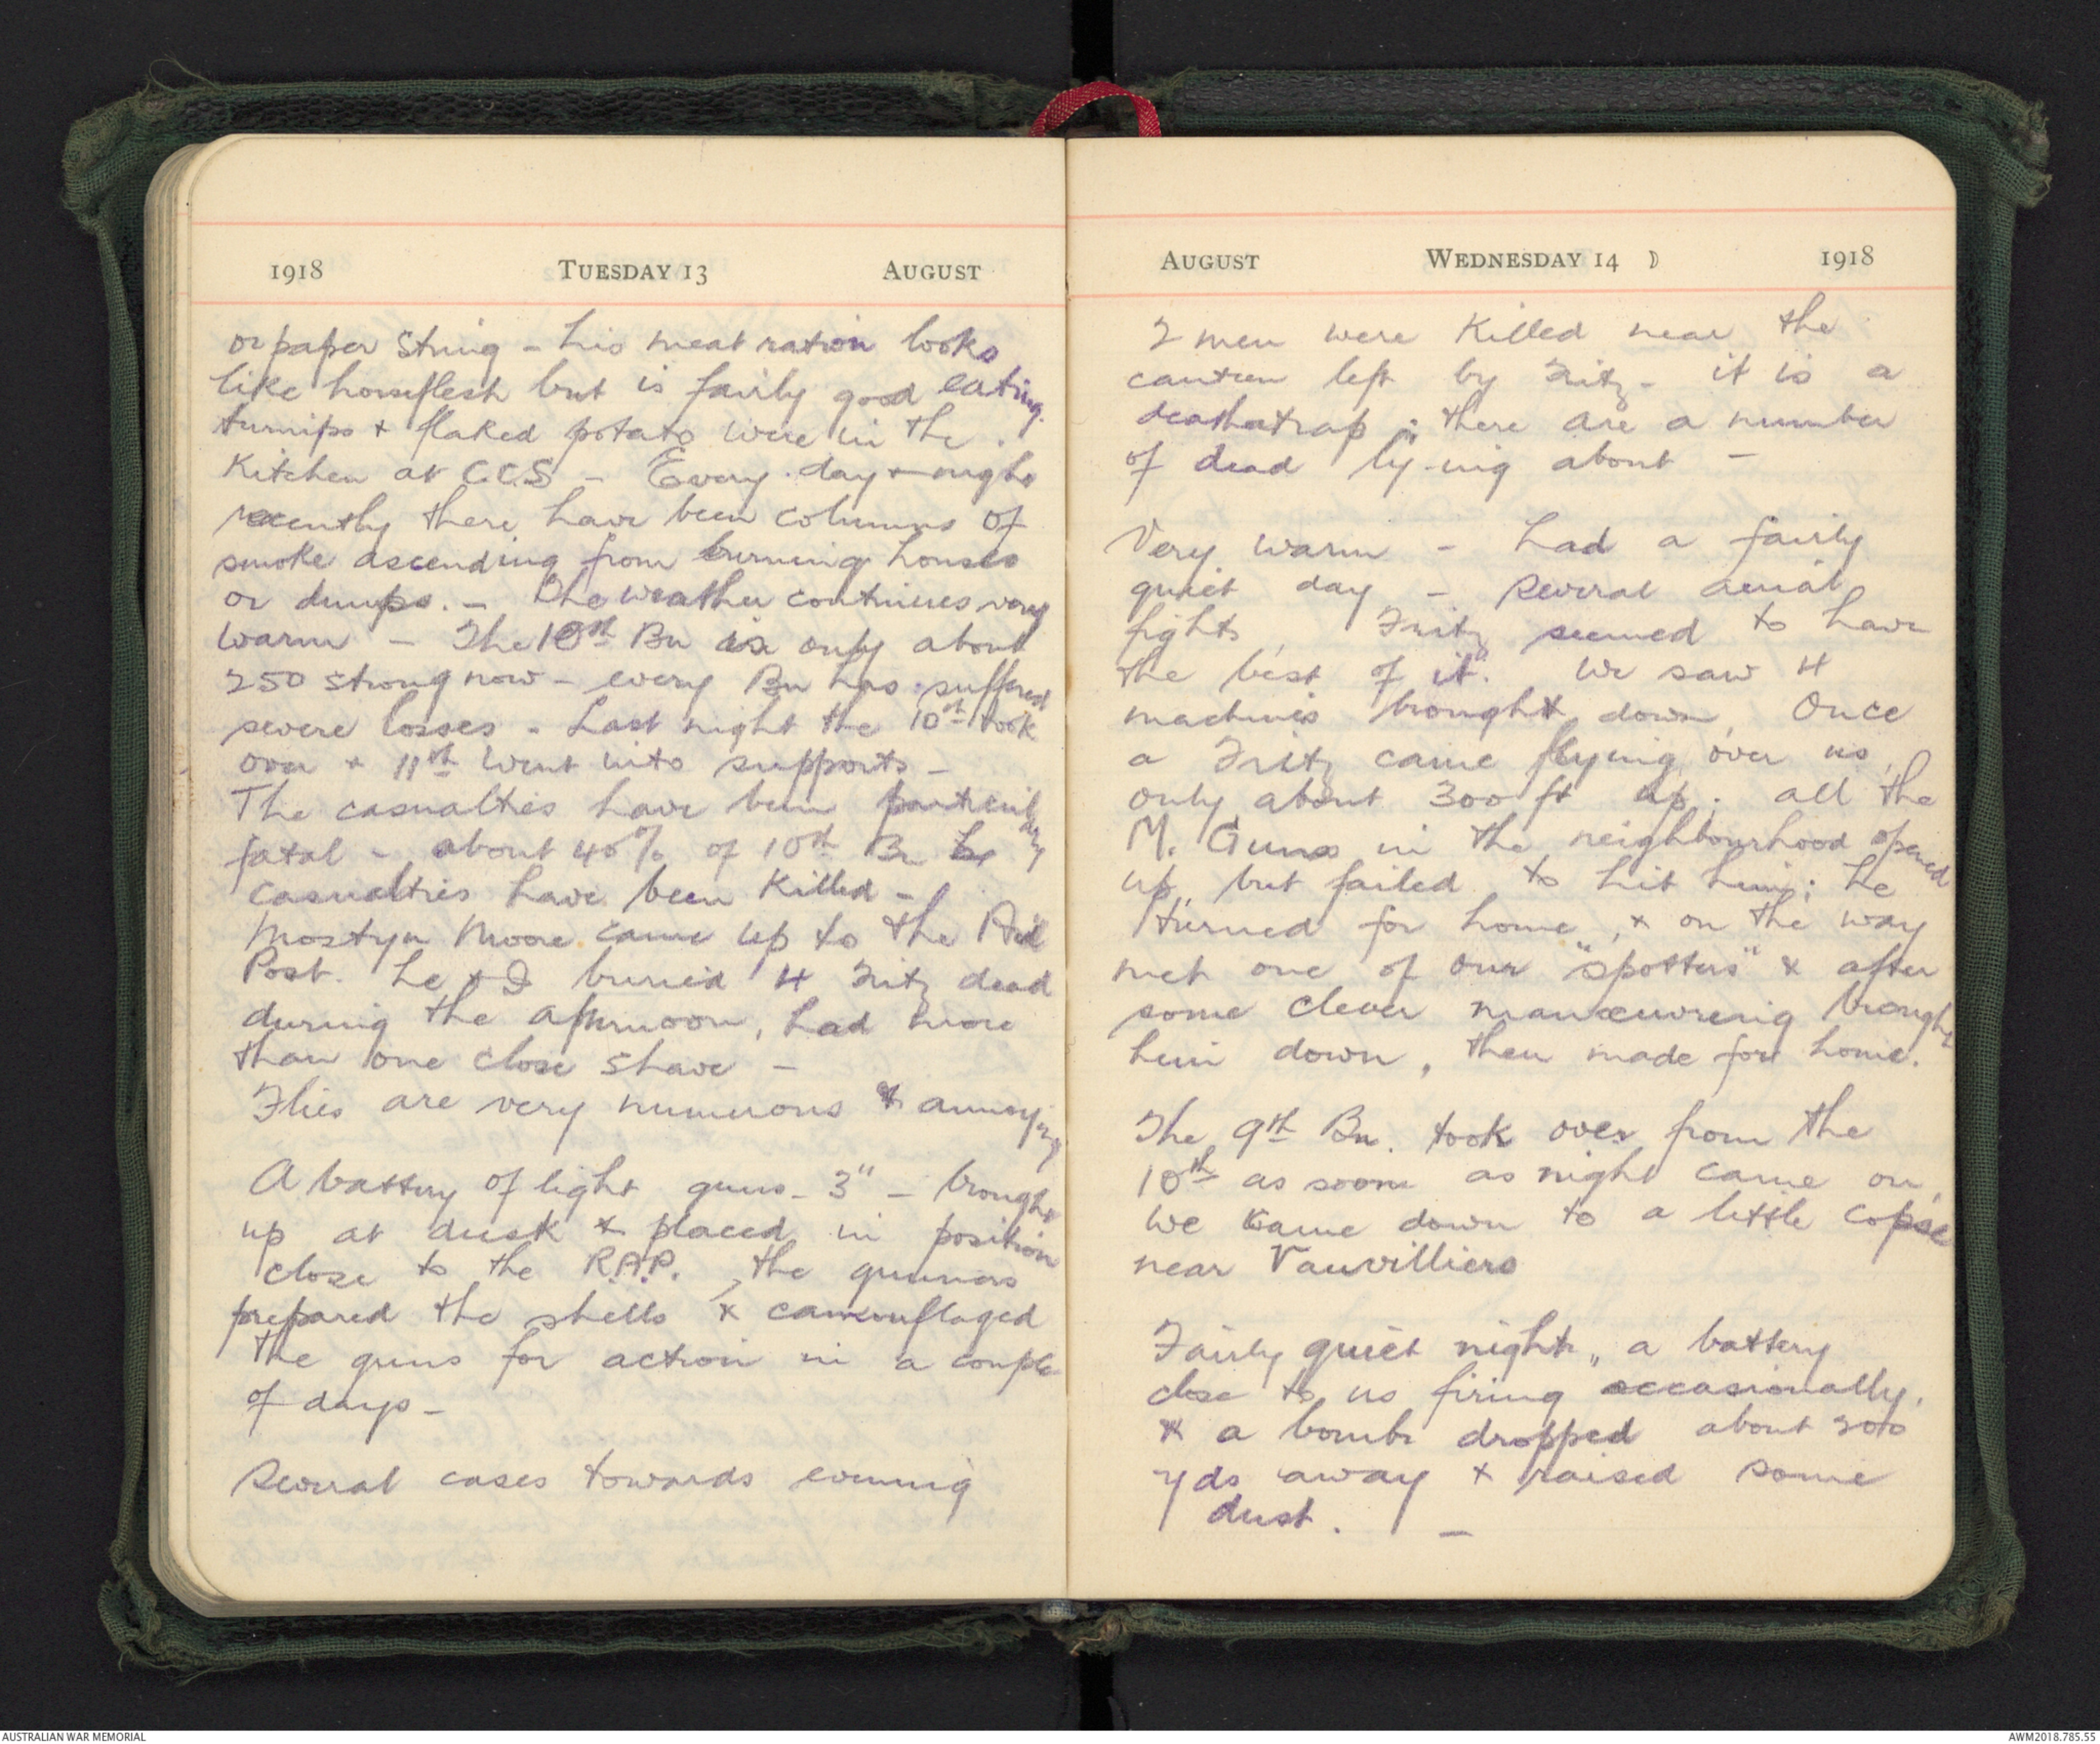 1918 TUESDAY 13 AUGUST
or paper string - his meat ration looks
like horseflesh but is fairly good eating.
turnips + flaked potato were in the
Kitchen at C.C.S - Every day + night
recently there have been columns of
smoke ascending from burning houses
or dumps. - The weather continues very
warm - The 10th Bn is only about
250 strong now - every Bn has suffered
severe losses - Last night the 10th took
over + 11th went into supports -
The casualties have been particularly
fatal - about 40% of 10th Bn
casualties have been Killed -
Mostyn Moore came up to the Aid
Post. he + I buried 4 Fritz dead
during the afternoon, had more
than one close shave -
Flies are very numerous & annoying
A battery of light guns - 3" - brought
up at dusk & placed in position
close to the R.A.P., the gunners
prepared the shells & camouflaged
the guns for action in a couple
of days -
Several cases towards evening
AUGUST WEDNESDAY 14 ☽ 1918
2 men were Killed near the
canteen left by Fritz - it is a
deathtrap; there are a number
of dead ly-ing about -
Very warm - had a fairly
quiet day - several aerial
fights, Fritz seemed to have
the best of it. We saw 4
machines brought down, Once
a Fritz came flying over us,
only about 300 ft up; all the
M. Guns in the neighbourhood opened
up, but failed to hit him; he
turned for home, & on the way
met one of our "spotters" & after
some clever manœuvreing brought
him down, then made for home.
The 9th Bn. took over from the
10th as soon as night came on,
we came down to a little copse
near Vauvilliers
Fairly quiet night, a battery
close to us firing occasionally,
& a bomb dropped about 300
yds away & raised some
dust. -
AUSTRALIAN WAR MEMORIAL AWM2018.785.55